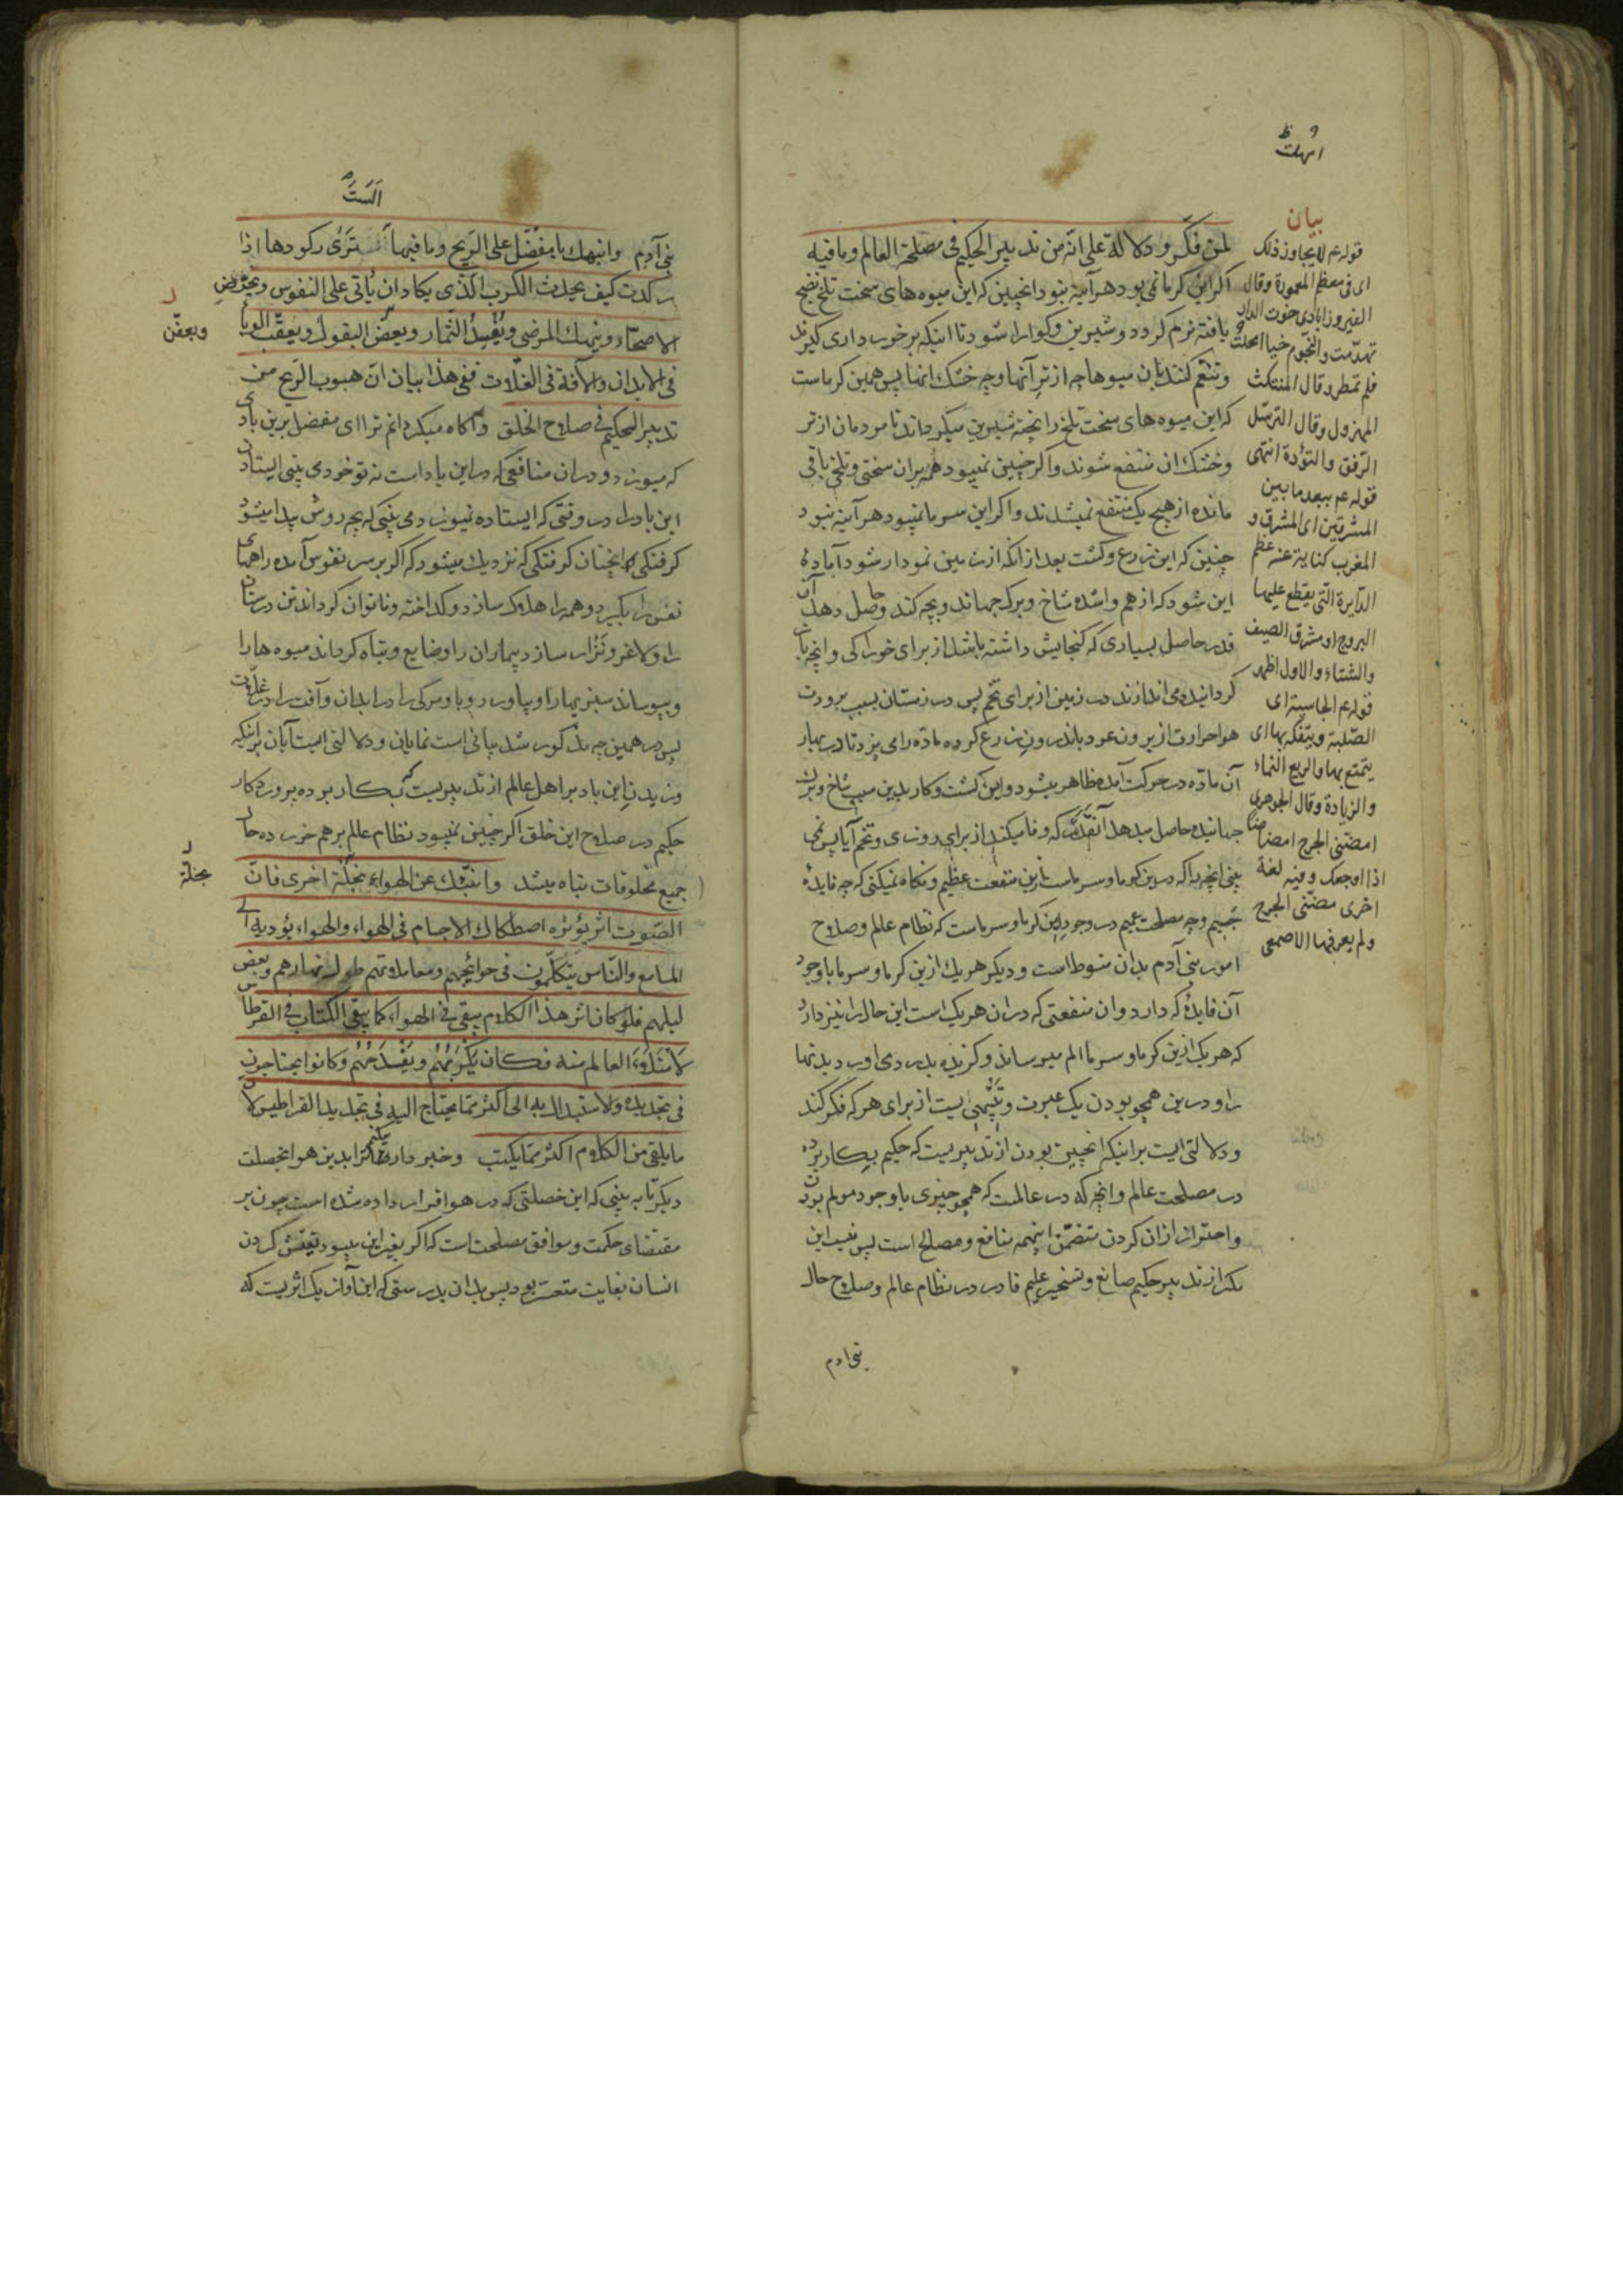 امهلت
بیان
قوله عم لا یجاوز ذلک
ای فی معظم المعمورة وقال
الفیروزابادی خوت الدار
تهدّمت والنجوم خیا امحلت
فلم تمطر وقال المنتکث
المهزول وقال الترسّل
الرّفق والتؤدة انتهی
قوله عم ببعد ما بین
المشرقین ای المشرق و
المغرب کنایة عنه عظم
الدّایرة التی یقطع علیها
البروج او مشرق الصیف
والشتاء والاول اظهر
قوله عم الجاسیة ای
الصّلبة ویتفکه بها ای
یتمتع بها والریع النماء
والزیادة وقال الجوهری
امضنی الجرح امضاضا
اذا اوجعک وفیه لغة
اخری مضّنی الجرح
ولم یعرفها الاصمعی
لمن فکّر ودلالة علی انّه من تدبیر الحکیم فی مصلحة العالم وما فیه
اکر این کرما نمی بود هر آینه نبود انچنین که این میوه های سخت تلخ نضج
یافته نرم کردد وشیرین وکوارا شود تا اینکه برخورداری کیرند
وتنعم کنند بان میوها چه از تر آنها وچه خشک انها پس همین کرماست
که این میوه های سخت تلخ را پخته شیرین میکرداند تا مردمان از تر
وخشک ان منتفع شوند واکر چنین نمیبود همه بران سختی وتلخی باقی
مانده از هیچ یک منتفع نمیشدند واکر این سرما نمیبود هر آینه نبود
چنین که این زرع وکشت بعد از آنکه از زمین نمودار شود آباده
این شود که از هم واشده شاخ وبرک جهاند وبچه کند وحاصل دهد آن
قدر حاصل بسیاری که کنجایش داشته باشد از برای خوراکی وانچه باز
کردانیده می اندازند در زمین از برای تخم پس در زمستان بسبب برودت
هوا حرارت از بیرون عود باندرون زرع کرده ماده را می پزد تا در بهار
آن ماده در حرکت آمده ظاهر میشود واین کشت وکار بدین سبب شاخ وبرک
جهانیده حاصل میدهد آنقدر که وفا میکند از برای روزی وتخم آیا پس نمی
بینی انچه را که درین کرما وسرماست ازین منفعت عظیم ونکاه نمیکنی که چه فایدهٔ
جسیم وچه مصلحت عمیم در وجود این کرما وسرماست که نظام عالم وصلاح
امور بنی آدم بدان منوط است ودیکر هر یک ازین کرما وسرما باوجود
آن فایدهٔ که دارد وان منفعتی که دران هر یک است این حال را نیز دارد
که هر یک ازین کرما وسرما الم میرساند وکزنده بدرد می اورد بدنها
را ودرین همچو بودن یک عبرت وتنبّهی است از برای هر که فکر کند
ودلالتی است برانیکه انچنین بودن از تدبیریست که حکیم بکار برده
در مصلحت عالم وانچه که در عالمست که همچو چیزی با وجود مولم بودن
واحتراز ازان کردن متضمّن اینهمه منافع ومصالح است پس نیست این
مکر از تدبیر حکیم صانع وتسخیر علیم قادر در نظام عالم وصلاح حال
بنی ادم
اَلَستَ
بنی آدم وانبهک یا مفضّل علی الرّیح وما فیها الست تری رکودها اذا
رکدت کیف یحدث الکرب الذی یکاد ان یأتی علی النفوس ویحرّض
الاصحّاء وینهک المرضی ویفسد الثمار ویعفّن البقول ویعقّب الوباء
ویعفّن
فی الابدان والآفة فی الغلّات ففی هذا بیان انّ هبوب الرّیح من
تدبیر الحکیم فی صلاح الخلق وآکاه میکردانم ترا ای مفضل برین بادی
که میوزد ودران منافعی که در این باد است نه تو خود می بینی ایستادن
این باد را در وقتی که ایستاده نمیوزد می بینی که بچه روش پیدا میشود
کرفتکی انچنان کرفتکی که نزدیک میشود که اکر بر سر نفوس آمده راههای
نفس را بکیرد وهمه را هلاک سازد وکداخته وناتوان کرداند تن درستان
را ولاغر ونزار سازد بیماران را وضایع وتباه کرداند میوه ها را
وبپوساند سبزیها را وبیاورد وبا ومرکی را در ابدان وآفت را در غلات
پس در همین چه مذکور شد بیانی است نمایان ودلالتی است آیان برانیکه
وزیدن این باد بر اهل عالم از تدبیریست که بکار برده پروردکار
حکیم در صلاح این خلق اکر چنین نمیبود نظام عالم برهم خورده حال
جمیع مخلوقات تباه میشد وانبّئک عن الهواء بخلّة اخری فانّ
بخلّة
الصّوت اثر یؤثره اصطکاک الاجسام فی الهواء والهواء یؤدیه الی
المسامع والنّاس یتکلّمون فی حوائجهم ومعاملاتهم طول نهارهم وبعض
لیلهم فلو کان اثر هذا الکلام یبقی فی الهواء کما یبقی الکتاب فی القرطاس
لامتلاء العالم منه فکان یکربهم ویفدحهم وکانوا یحتاجون
فی تجدیده والاستبدال به الی اکثر ممّا یحتاج الیه فی تجدید القراطیس لان
ما یلقی من الکلام اکثر ممّا یکتب وخبر دار میکنم ترا بدین هوا بخصلت
دیکر تا به بینی که این خصلتی که در هوا قرار داده شده است چون بر
مقتضای حکمت وموافق مصلحت است که اکر بغیر این میبود تعیّش کردن
انسان بغایت متعسّر بود پس بدان بدرستی که این آواز یک اثریست که